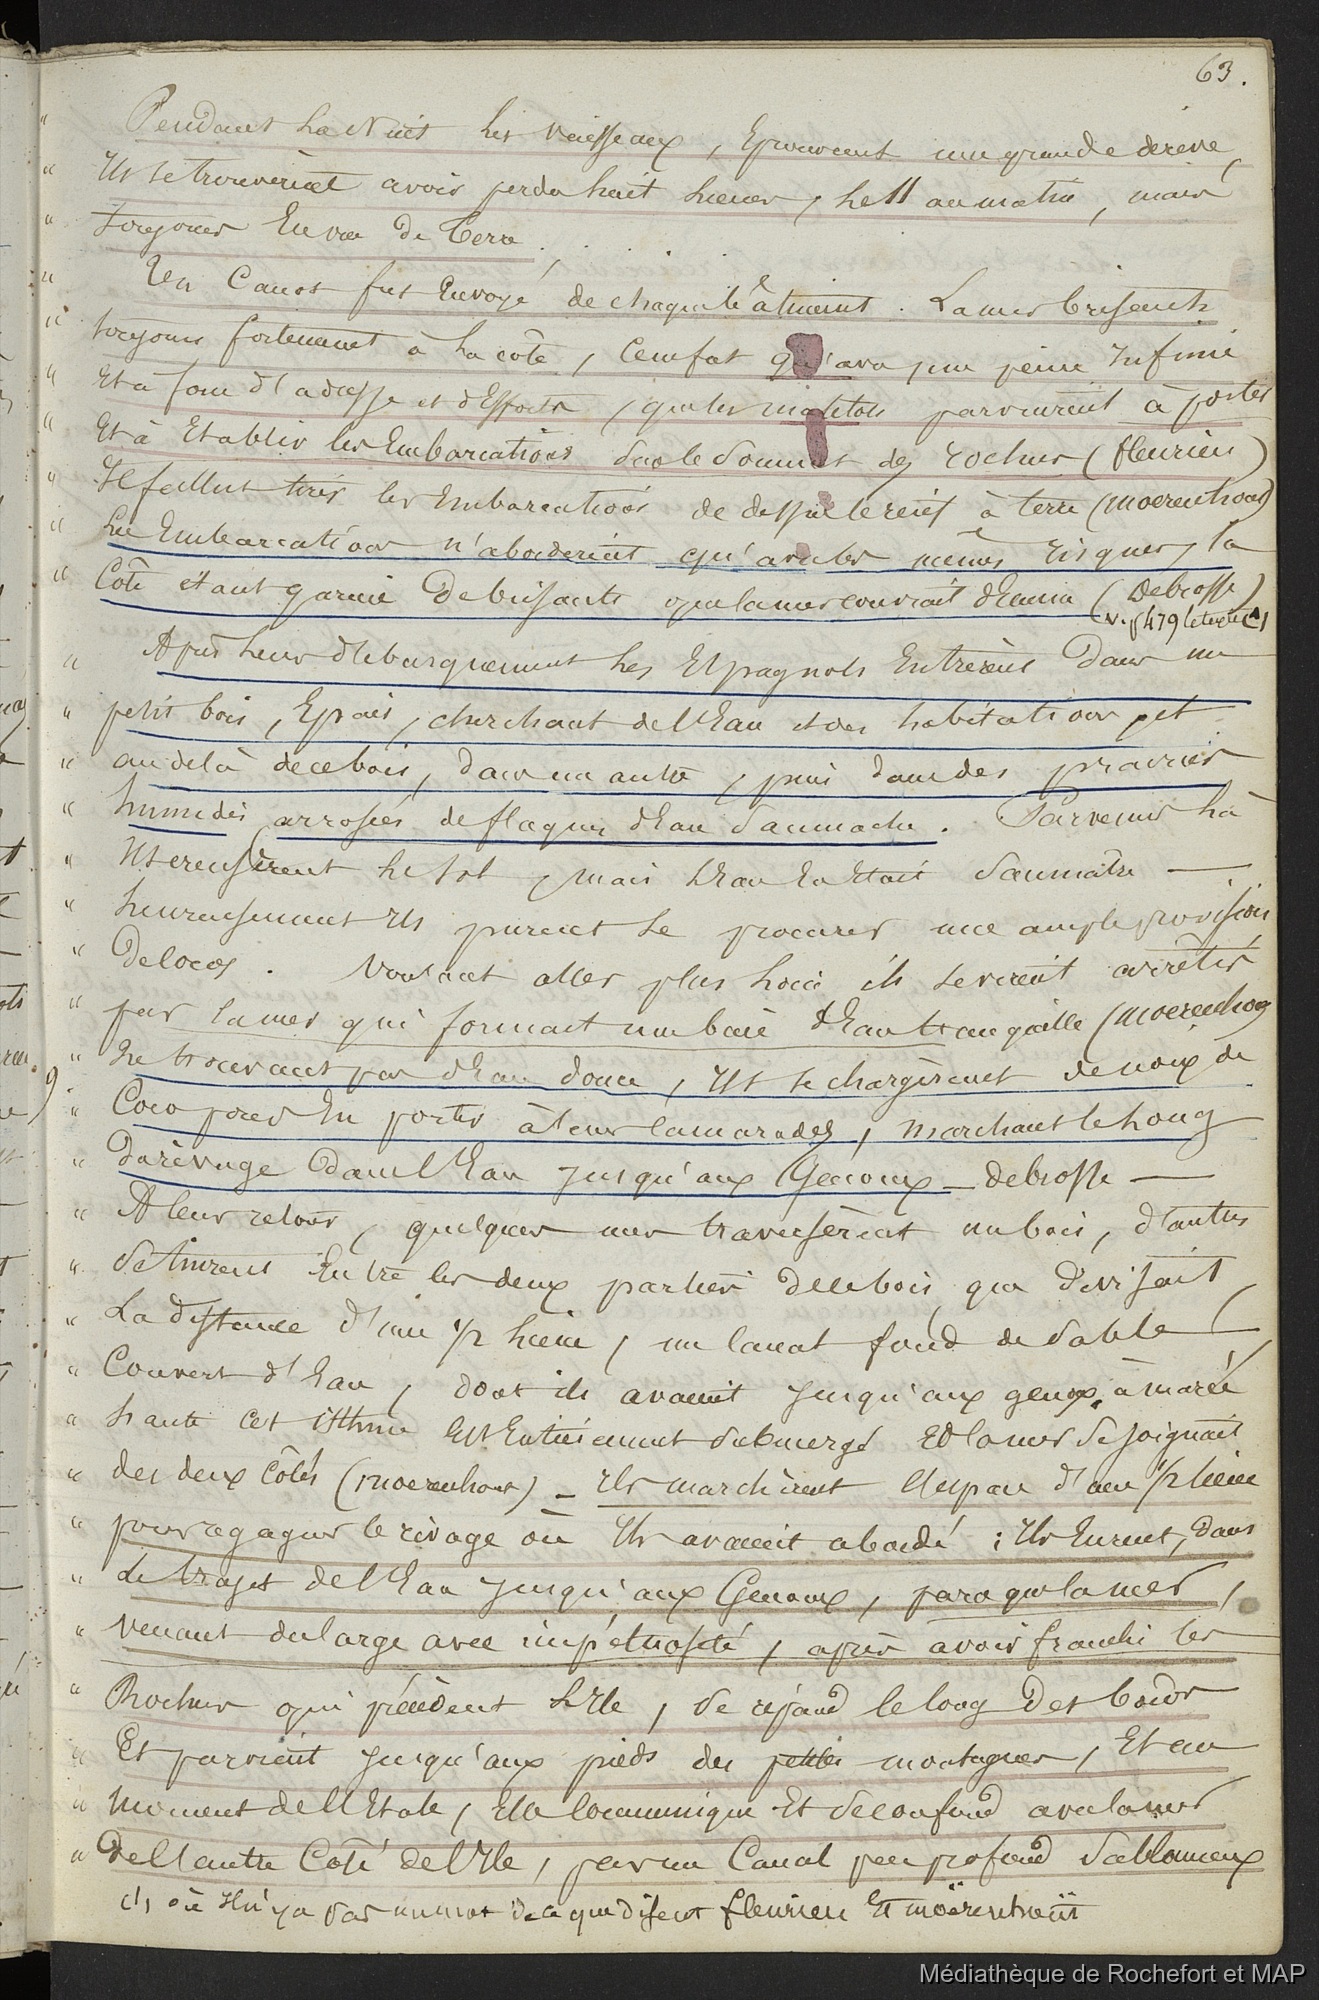 63.
" Pendant la Nuit les vaisseaux, Eprouvent une grande dérive,
" Ils se trouvèrent avoir perdu huit lieues, le 11 au matin, mais
" toujours En vue de Terre.
" Un Canot fut Envoyé de chaque bâtiment. La mer brisant
" toujours fortement à la côte, ce ne fut qu'avec une peine Infinie
" Et à force d'adresse et d'Efforts, que les matelots parvinrent à porter
" Et à Etablir les Embarcations sur le sommet des rochers (fleurieu)
" Il fallut tirer les Embarcations de dessus le récif à terre (Moerenhout)
" Les Embarcations n'abordèrent qu'avec les mêmes risques, la
" Côte étant garnie de brisants que la mer couvrait d'Ecume (Debrosse)
v. p 479 le texte (1)
" Après leur débarquement les Espagnols Entrèrent dans un
" petit bois, Epais, cherchant de l'Eau et des habitations, et
" au delà de ce bois, dans un autre, puis dans des prairies
" humides arrosées de flaques d'Eau saumache. Parvenus là
" Ils creusèrent le sol, mais l'Eau En Etait saumâtre —
" heureusement Ils purent se procurer une ample provision
" De cocos. Voulant aller plus loin ils se virent arrêtés
" par la mer qui formait une baie d'Eau tranquille (Moerenhou
" Ne trouvant pas d'Eau douce, Ils se chargèrent de noix de
" Coco pour En porter à leurs camarades, marchant le long
" Du rivage dans l'Eau jusqu'aux Genoux — debrosse —
" A leur retour, quelques uns traversèrent un bois, d'autres
" se tinrent Entre les deux parties de ce bois que divisait,
" La distance d'une 1/2 lieue, un canal fond de sable,
" Couvert d'Eau, dont ils avaient jusqu'aux genoux, à marée
" haute cet isthme Est Entièrement submergé Et la mer se joignait
" des deux côtés (Moerenhout) — Ils marchèrent l'Espace d'une 1/2 lieue
" pour regagner le rivage où Ils avaient abordé : Ils Eurent, dans
" le trajet de l'Eau jusqu'aux Genoux, parce que la mer,
" venant du large avec impétuosité, après avoir franchi les
" Rochers qui précèdent l'Ile, se répand le long des bords
" Et parvient jusqu'aux pieds des petites montagnes, Et au
" Moment de l'Etale, Elle communique Et se confond avec la mer
" De l'autre Coté de l'Ile, par un Canal peu profond sablonneux
(1) où Il n'y a pas un mot de ce que disent fleurieu Et moërenhoüt
Médiathèque de Rochefort et MAP